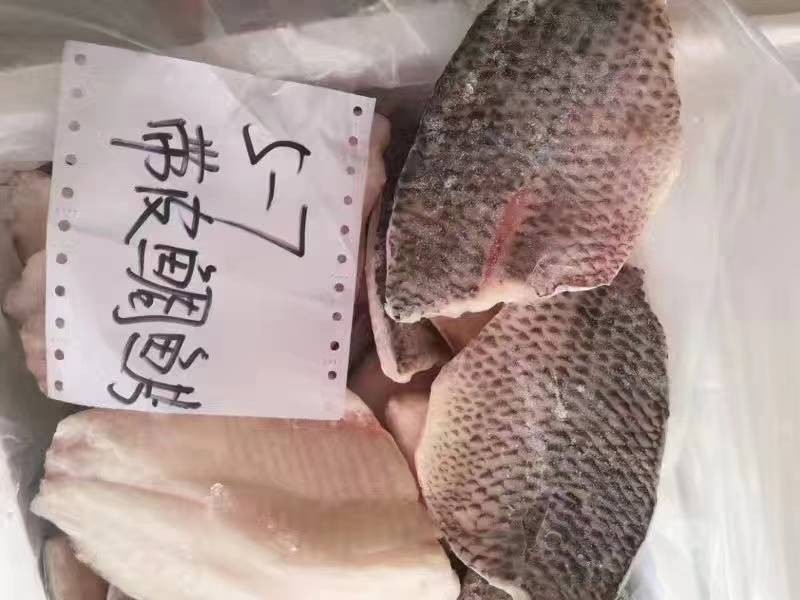 5-7
带皮鲷鱼片